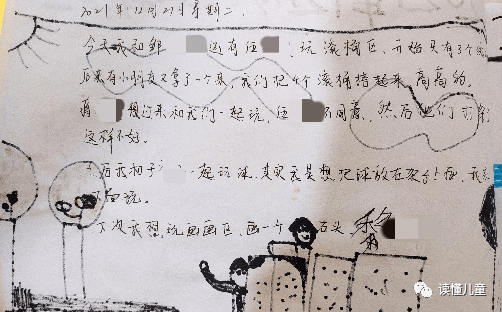 2021年12月21日星期二
今天我和邹 还有任 玩滚桶区，开始只有3个
后来有小朋友又拿了一个来，我们把4个滚桶搭起来，高高的。
再 想过来和我们一起玩，任 不同意，然后他们打
这样不好。
后我和子 一起玩球，其实我是想把球放在架台上面，我
下面玩。
下次我想玩画画区，画一个 石头
读懂儿童